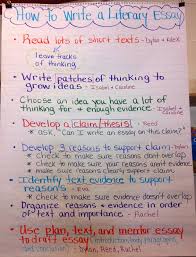 How to Write a Literary Essay
• Read lots of short texts - Dylan + Alex
leave tracks
of thinking
• Write patches of thinking to
grow ideas - Isabel + Caroline
• Choose an idea you have a lot of
thinking for + growth - Isabel + Caroline
• Develop a claim/thesis - René
* ASK, "Can I write an essay on this claim?"
• Develop 3 reasons to support claim - Dylan
* Check to make sure reasons dont overlap
* check to make sure your reasons aren't
* make sure reasons clearly support claim
• Identify text evidence to support
reasons - Eva
* check to make sure evidence doesn't overlap
• Organize reasons + evidence in order
of text and importance - Rachel
• Use plan, text, and mentor essay
to draft essay (introduction, body paragraphs,
and conclusion) - Dylan, René, Rachel